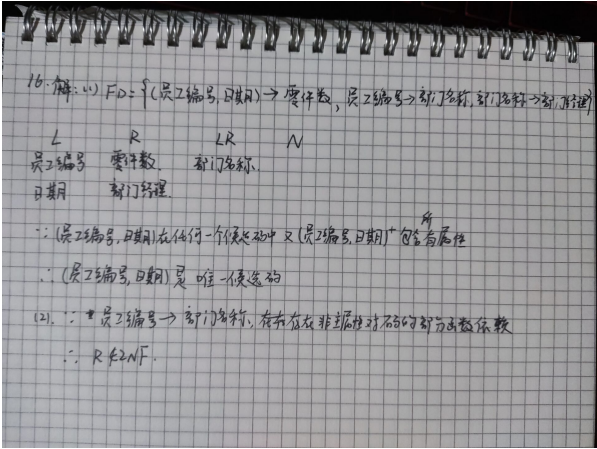 16.解:(1) FD={(员工编号,日期)→零件数,员工编号→部门名称,部门名称→部门经理}
L R LR N
员工编号 零件数. 部门名称.
日期 部门经理.
∵(员工编号,日期)在任何一个候选码中 又(员工编号,日期)⁺包含所有属性
∴(员工编号,日期)是唯一候选码
(2).∵员工编号→部门名称,存在非主属性对码的部分函数依赖
∴R∉2NF.